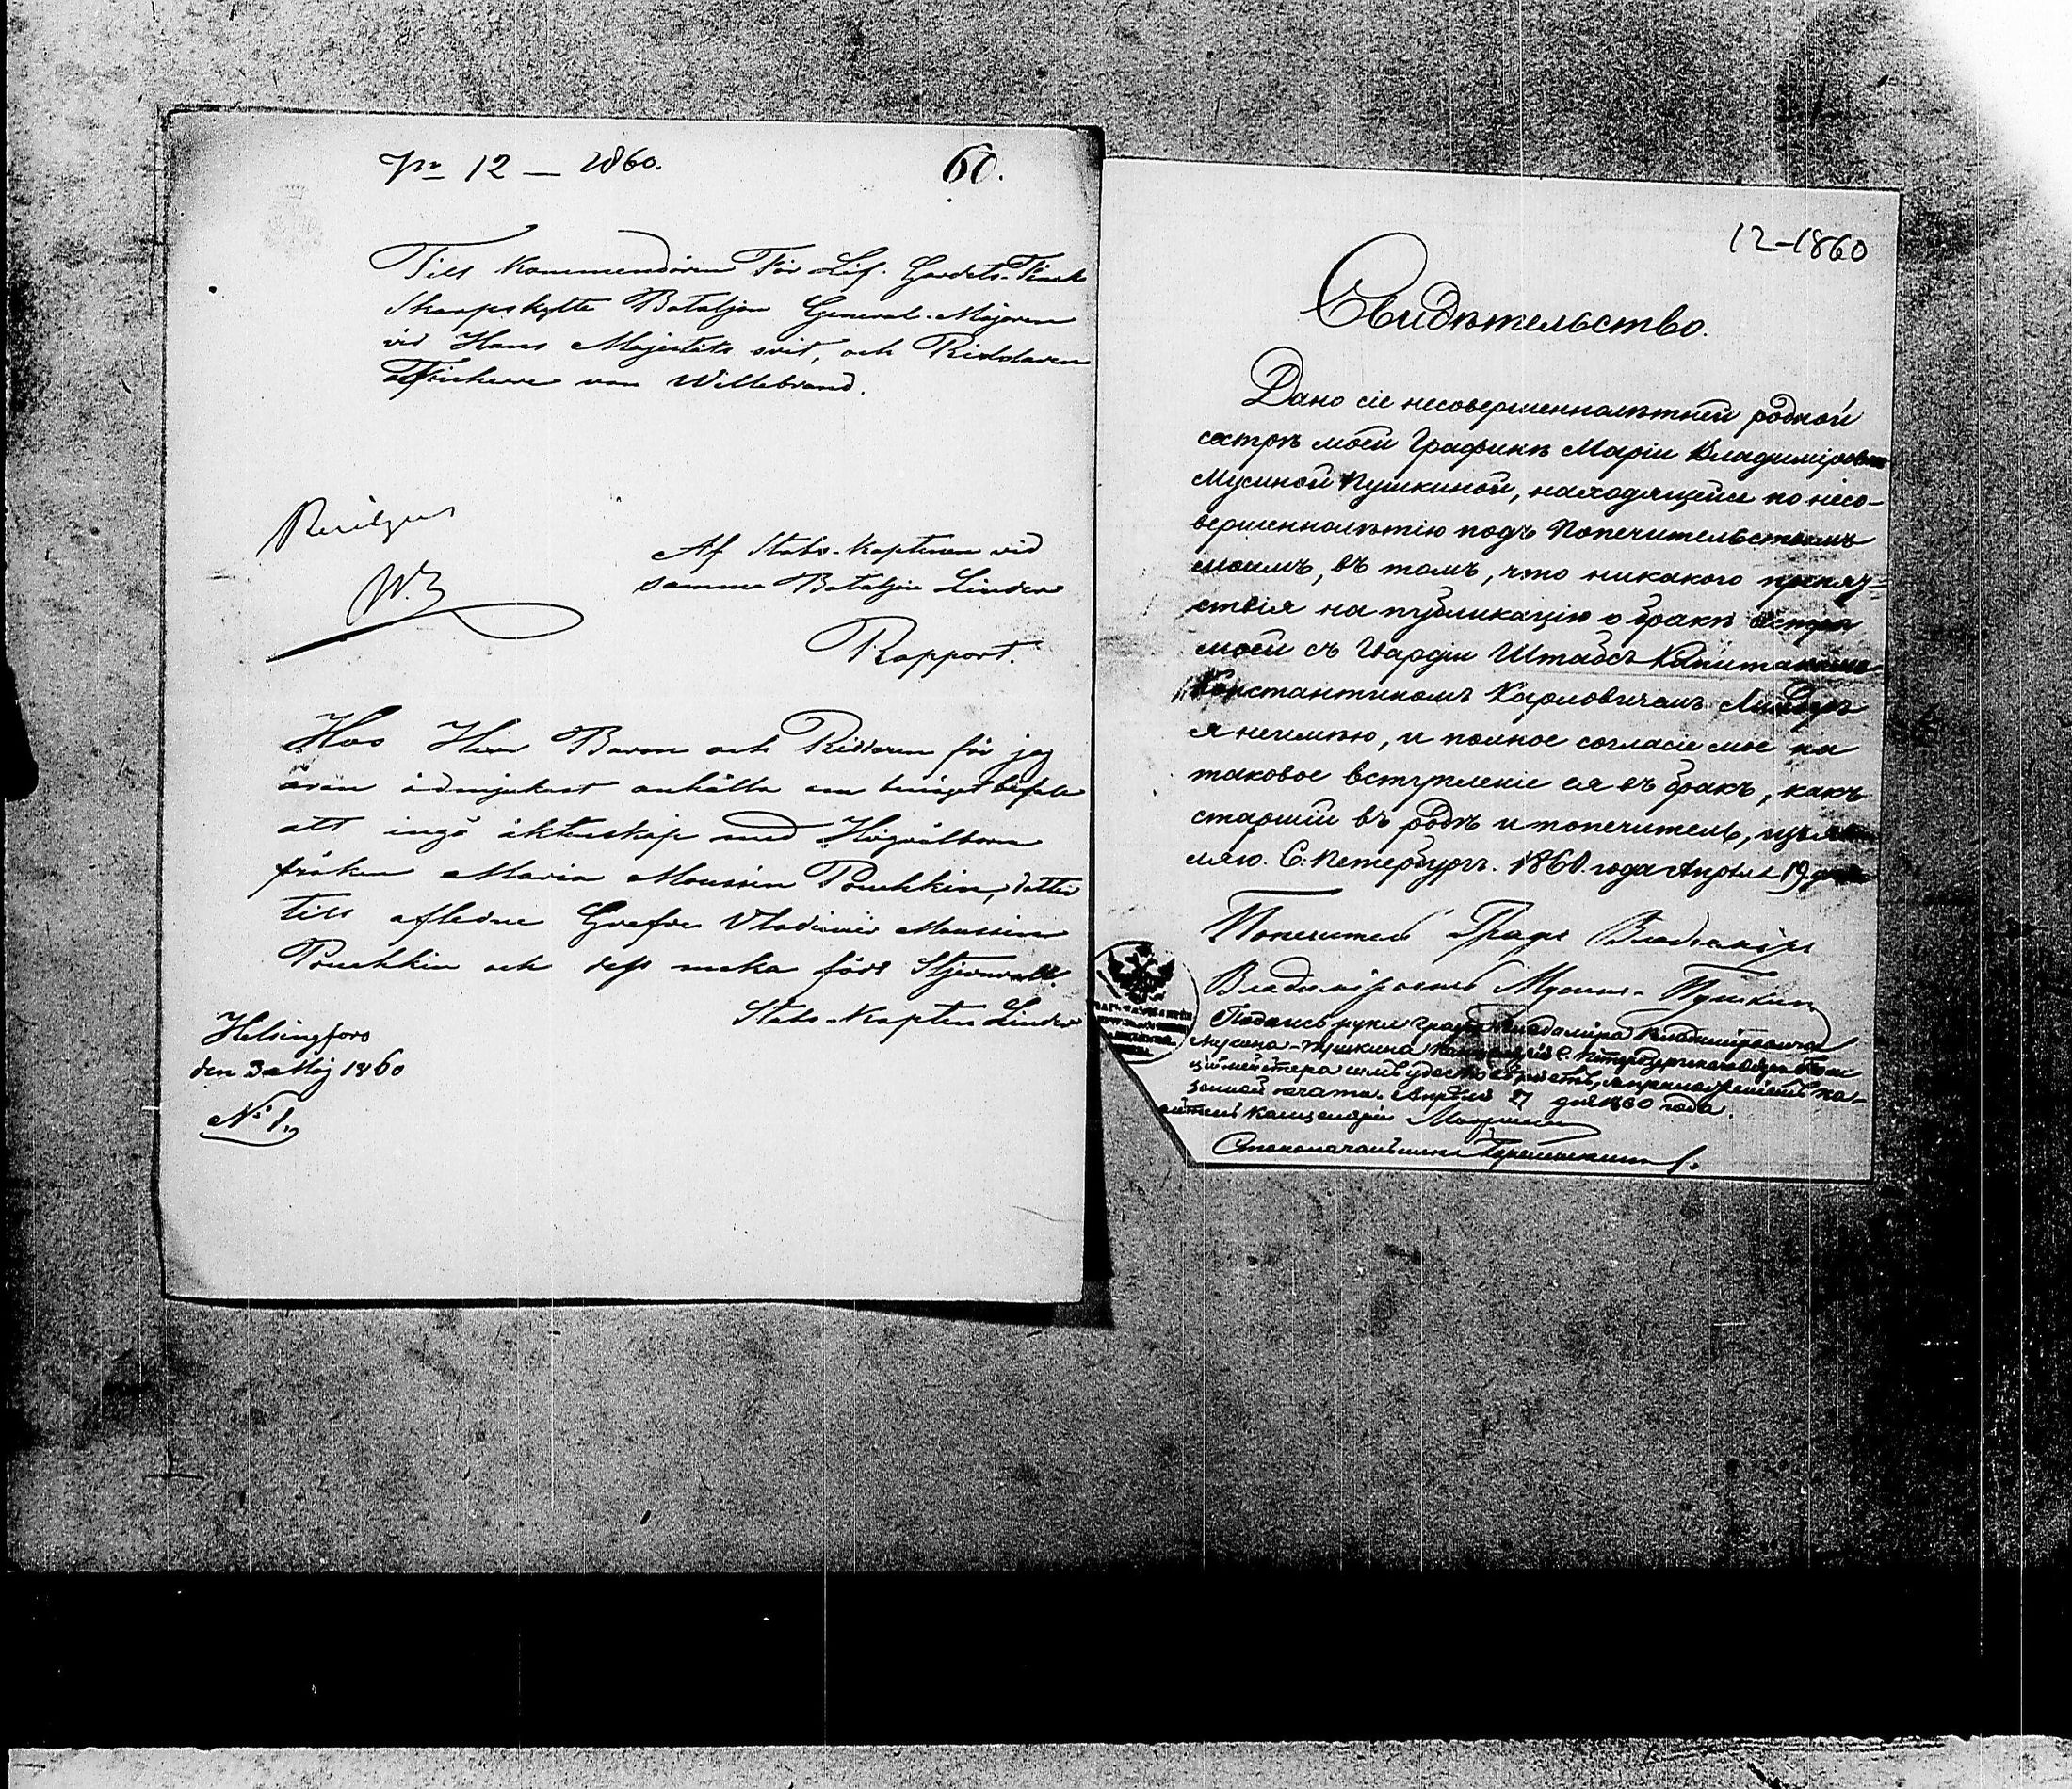 No 12 — 1860.
60.
Till Kommendören För Lif. Gardets. Finska
Skarpskytte Bataljon General-Majoren
vid Hans Majestäts svit, och Riddaren
Friherre von Willebrand.
Af Stabs-Kaptenen vid
samma Bataljon Linder
Rapport.
Hos Herr Baron och Riddaren får jag
äran ödmjukast anhålla om
att ingå äktenskap med Högvälborna
fröken Maria Moussin Pouchkin, dotter
till aflidne Grefve Vladimir Moussin
Pouchkin och dess maka född Stjernvall.
Stabs-Kapten Linder
Helsingfors
den 3 Maj 1860
No 1.
12-1860
Свидѣтельство.
Дано сіе несовершеннолѣтней родной
сестрѣ моей Графинѣ Маріи Владиміровнѣ
Мусиной Пушкиной, находящейся по несо-
вершеннолѣтію подъ Попечительствомъ
моимъ, въ томъ, что никакого препят-
ствія на публикацію о бракѣ сестры
моей съ Гвардіи Штабсъ Капитаномъ
Константиномъ Карловичемъ Линдеръ
я неимѣю, и полное согласіе мое на
таковое вступленіе ея въ бракъ, какъ
старшій въ родѣ и попечитель, изъяв-
ляю. С. Петербургъ. 1860. года Апрѣля 19 дня
Попечитель Графъ Владиміръ
Владиміровичъ Мусинъ-Пушкинъ
Подпись руки графа Владиміра Владиміровича
Мусина-Пушкина С. Петербургскаго Оберъ Поли
ціймейстера симъ удостовѣряетъ, съ приложеніемъ ка-
зенной печати. Апрѣля 27 дня 1860 года.
канцеляріи
Столоначальникъ